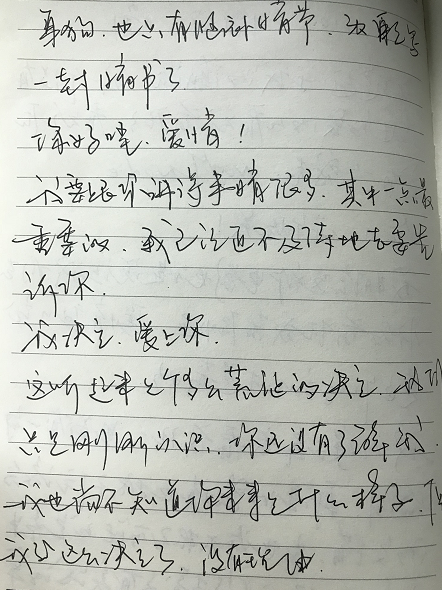 身狗.也只有这种情节.我配写
一封情书了
你好哇.爱情!
我要跟你讲得事情很多.其中一点最
重要的.我已经迫不及待地去要告
诉你.
我决定.爱上你.
这听起来是个多么荒诞的决定.我们
只是刚刚认识.你还没有了解我.
我也尚不知道你未来是什么样子.但
我这么决定了.没有理由.